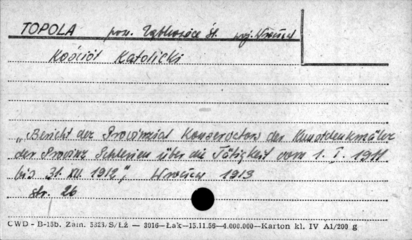 TOPOLA pow. Ząbkowice Śl. woj. Wrocław
Kościół Katolicki
"Bericht des Provinzial Konservators der Kunstdenkmäler
der Provinz Schlesien über die Tätigkeit vom 1. I. 1911
bis 31. XII. 1912", Wrocław 1913
str. 26
CWD - B-15b. Zam. 5323/S/12 — 3016—Łak—15.11.56—4.000.000—Karton kl. IV A1/200 g